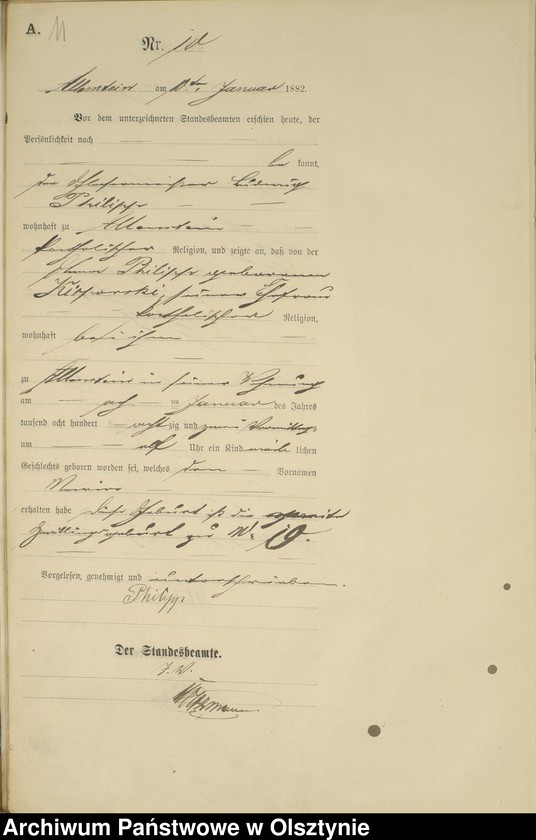 A. 11
Nr. 10
Allenstein am 10ten Januar 1882.
Vor dem unterzeichneten Standesbeamten erschien heute, der
Persönlichkeit nach
be kannt,
der
Philipp
wohnhaft zu Allenstein
katholischer Religion, und zeigte an, daß von der
Philipp geborenen
seiner Ehefrau
katholischer Religion,
wohnhaft bei ihm
zu Allenstein in seiner Wohnung
am ten Januar des Jahres
tausend acht hundert acht zig und zwei Vormittags
um elf Uhr ein Kind lichen
Geschlechts geboren worden sei, welches den Vornamen
erhalten habe. Diese Geburt ist die zweite
Zwillingsgeburt zu №
Vorgelesen, genehmigt und unterschrieben.
Philipp
Der Standesbeamte.
J. V.
Archiwum Państwowe w Olsztynie